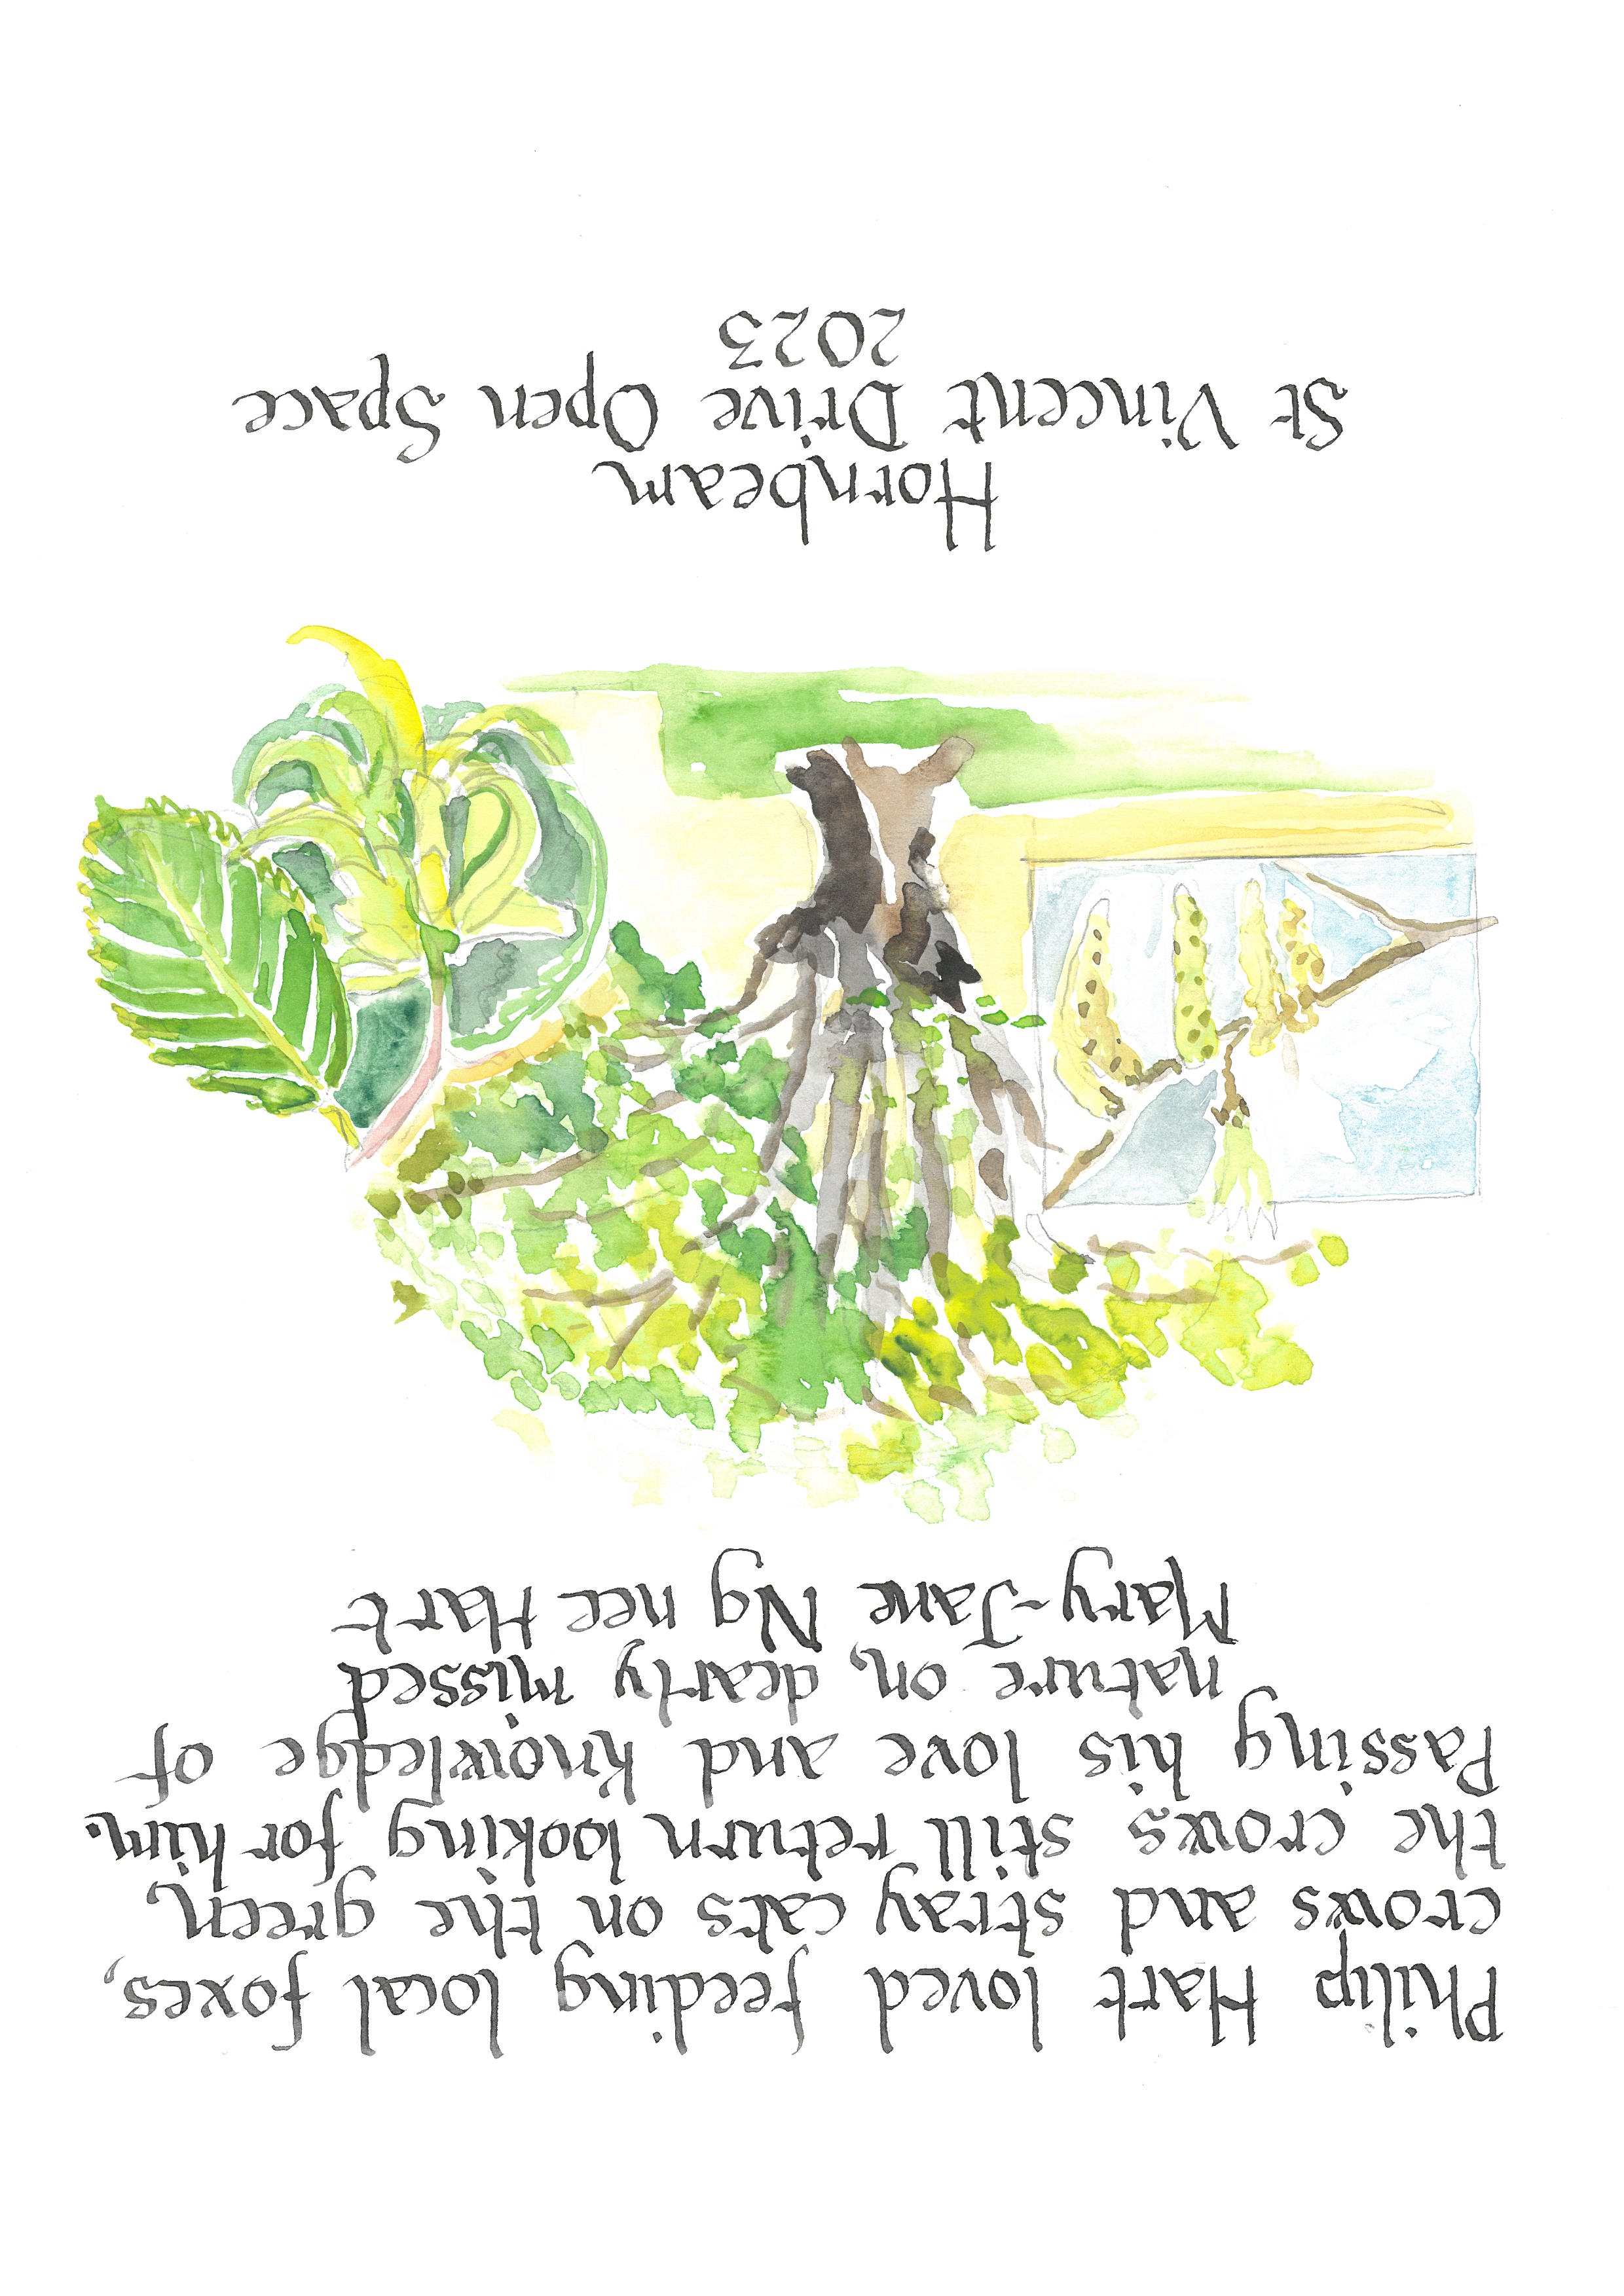 Philip Hart loved feeding local foxes,
crows and stray cats on the green,
the crows still return looking for him.
Passing his love and knowledge of
nature on, dearly missed
Mary-Jane Ng nee Hart
Hornbeam
St Vincent Drive Open Space
2023